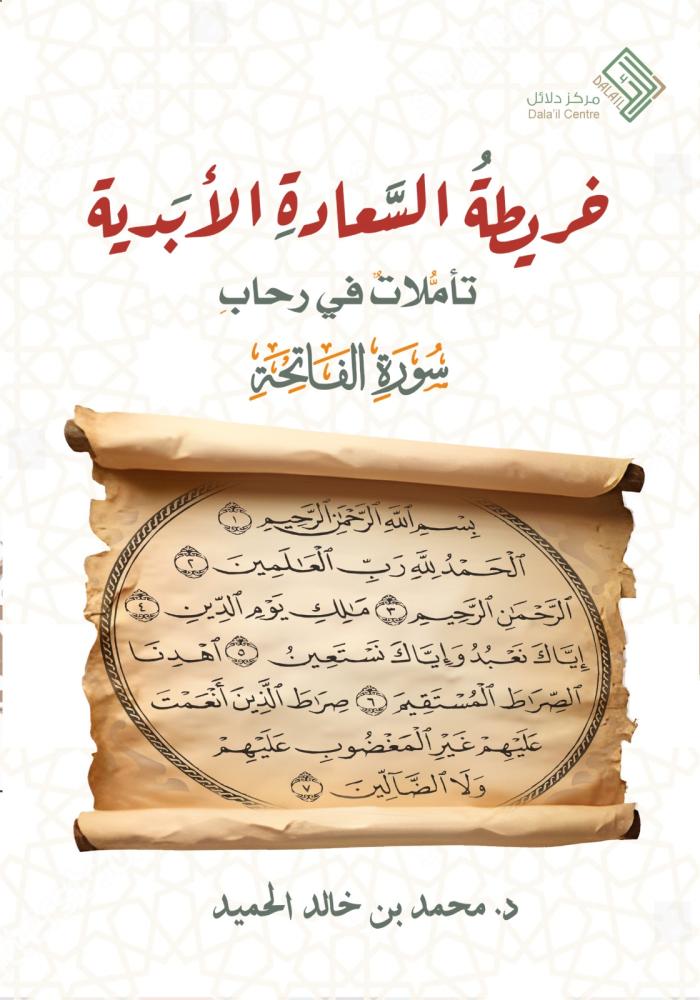 مركز دلائل
Dala'il Centre
DALAIL
خريطةُ السَّعادةِ الأبَدية
تأمُّلاتٌ في رحابِ
سُورَةِ الفَاتِحَةِ
بِسْمِ ٱللَّهِ ٱلرَّحْمَٰنِ ٱلرَّحِيمِ ١
ٱلْحَمْدُ لِلَّهِ رَبِّ ٱلْعَٰلَمِينَ ٢
ٱلرَّحْمَٰنِ ٱلرَّحِيمِ ٣ مَٰلِكِ يَوْمِ ٱلدِّينِ ٤
إِيَّاكَ نَعْبُدُ وَإِيَّاكَ نَسْتَعِينُ ٥ ٱهْدِنَا
ٱلصِّرَٰطَ ٱلْمُسْتَقِيمَ ٦ صِرَٰطَ ٱلَّذِينَ أَنْعَمْتَ
عَلَيْهِمْ غَيْرِ ٱلْمَغْضُوبِ عَلَيْهِمْ
وَلَا ٱلضَّآلِّينَ ٧
د. محمد بن خالد الحميد